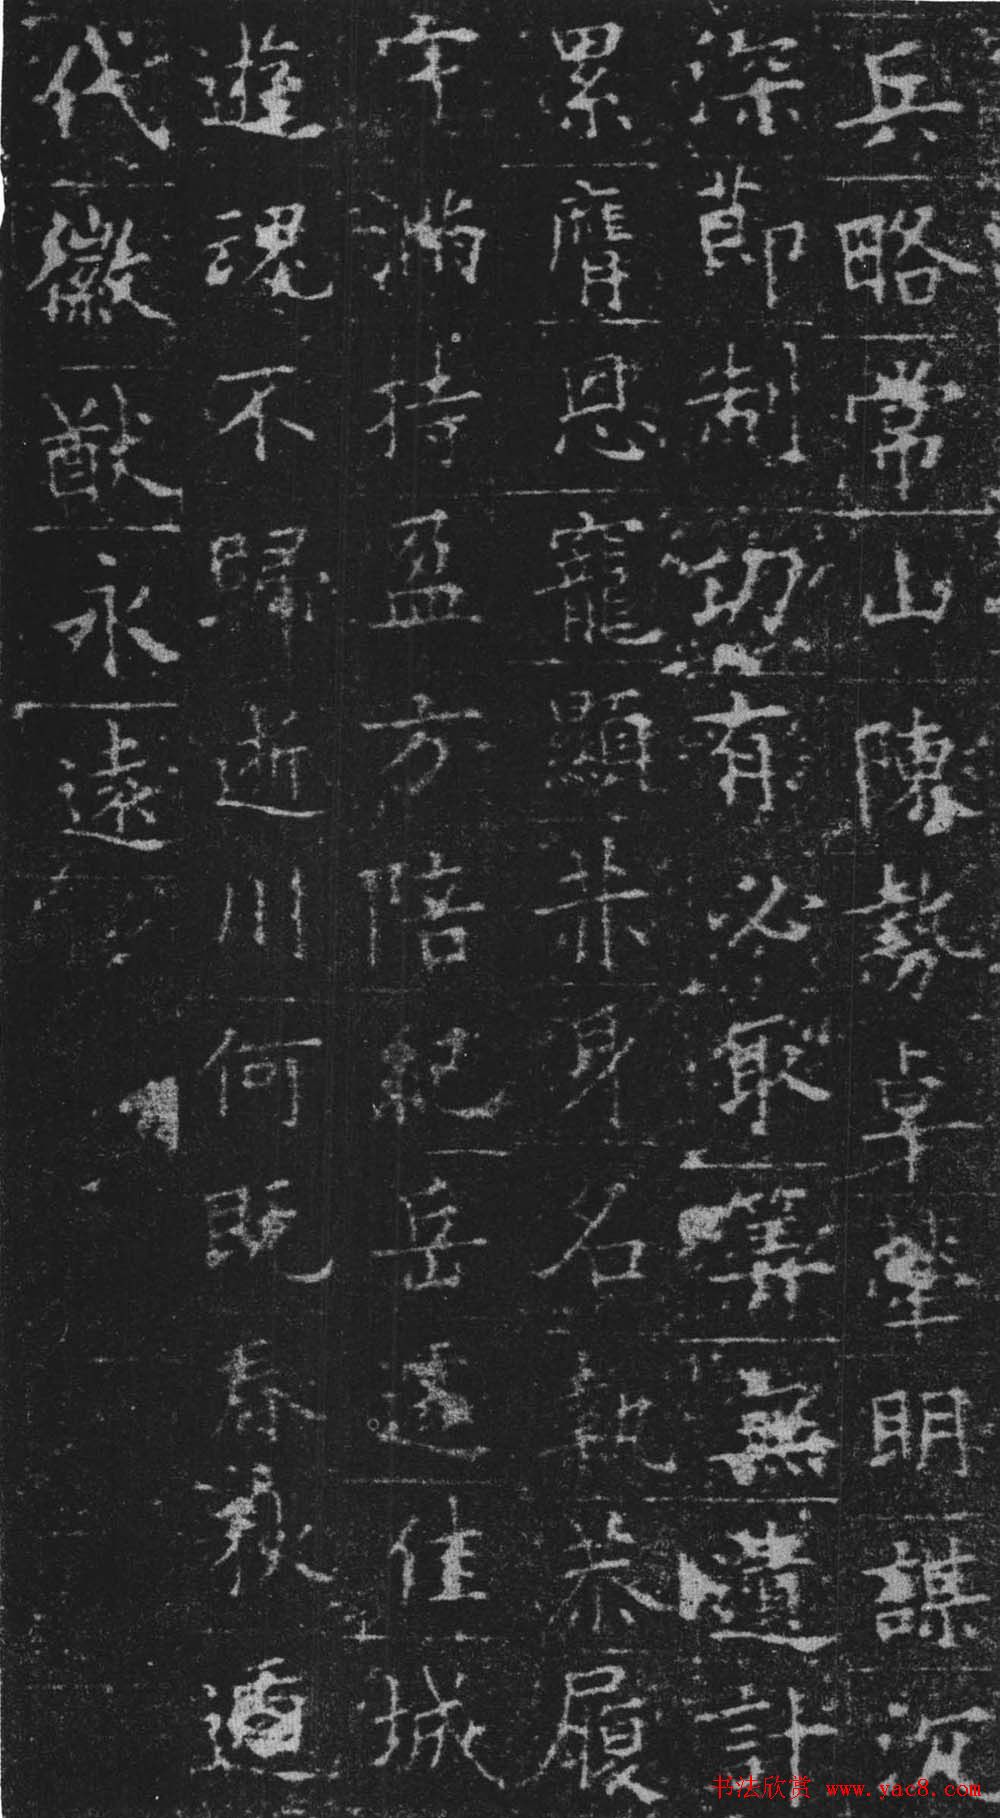 兵略常山陳勢卓犖明謀沉
深節制功有必取筭無遺計
累膺恩寵顯身名執恭履
滿持盈方陪紀岳佳城
遊魂不歸逝川何既春秋遞
代徽猷永遠
书法欣赏 www.yac8.com